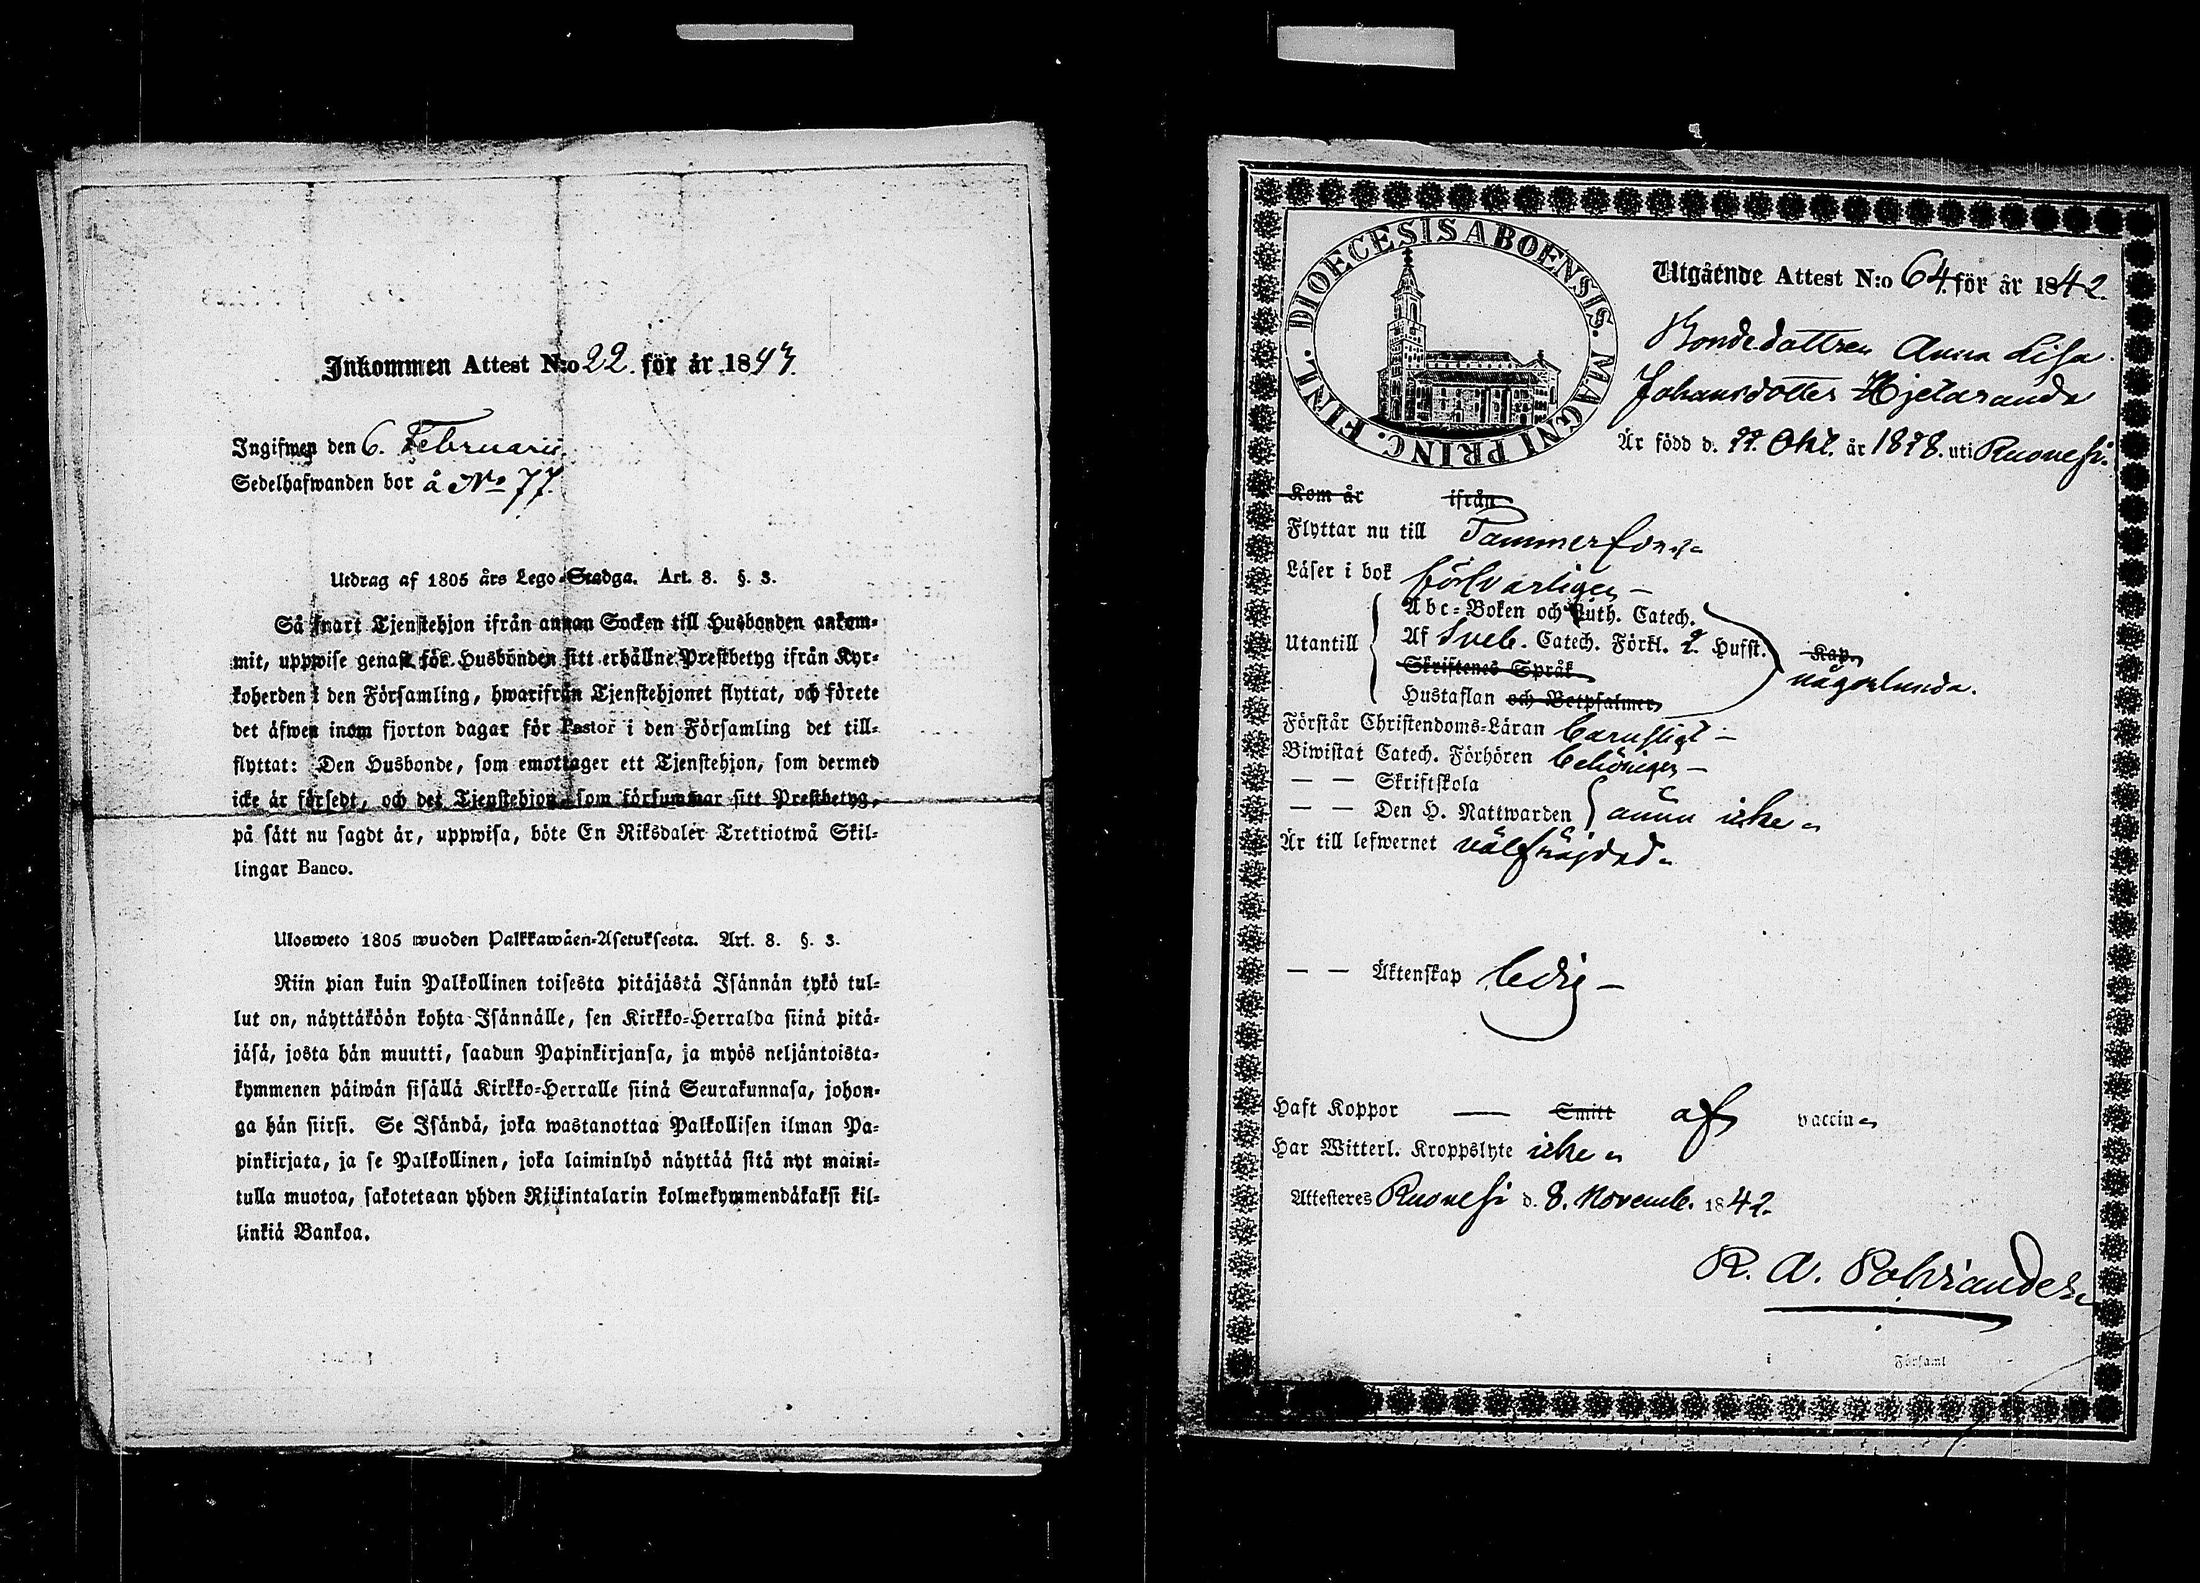 Inkommen Attest N:o 22. för år 1843.
Ingifwen den 6. Februarii
Sedelhafwanden bor å No 77.
Utdrag af 1805 års Lego-Stadga. Art. 8. §. 3.
Så snart Tjenstehjon ifrån annan Socken till Husbonden ankom-
mit, uppwise genast för Husbonden sitt erhållne Prestbetyg ifrån Kyr-
koherden i den Församling, hwarifrån Tjenstehjonet flyttat, och förete
det äfwen inom fjorton dagar för Pastor i den Församling det till-
flyttat: Den Husbonde, som emottager ett Tjenstehjon, som dermed
icke är försedt, och det Tjenstehjon, som försummar sitt Prestbetyg,
på sätt nu sagdt är, uppwisa, böte En Riksdaler Trettiotwå Skil-
lingar Banco.
Ulosweto 1805 wuoden Palkkawäen-Asetuksesta. Art. 8. §. 3.
Niin pian kuin Palkollinen toisesta pitäjästä Isännän tykö tul-
lut on, näyttäköön kohta Isännälle, sen Kirkko-Herralda siinä pitä-
jäsä, josta hän muutti, saadun Papinkirjansa, ja myös neljäntoista-
kymmenen päiwän sisällä Kirkko-Herralle siinä Seurakunnasa, johon-
ga hän siirsi. Se Isändä, joka wastanottaa Palkollisen ilman Pa-
pinkirjata, ja se Palkollinen, joka laiminlyö näyttää sitä nyt maini-
tulla muotoa, sakotetaan yhden Riikintalarin kolmekymmendäkaksi kil-
linkiä Bankoa.
DIOECESIS ABOENSIS. MAGNI PRINC. FINL.
Utgående Attest N:o 64. för år 1842.
Bondedottren Anna Lisa
Johansdotter Hjelaranda
Är född d. 22. Okt. år 1828. uti Ruovesi.
Kom år ifrån
Flyttar nu till Tammerfors
Läser i bok försvarligen
Abc-Boken och Luth. Catech.
Utantill Af Sveb. Catech. Förkl. 2 Hufst. Kap.
Skriftenes Språk någorlunda.
Hustaflan och Botpsalmer
Förstår Christendoms-Läran barnsligt
Biwistat Catech. Förhören behörigen
— — Skriftskola
— — Den H. Nattwarden ännu icke
Är till lefwernet välfräjdad
— — Äktenskap ledig
Haft Koppor — Smitt af vaccin
Har Witterl. Kroppslyte icke
Attesteres Ruovesi d. 8. Novemb. 1842.
R. A. Polviander
i Församl